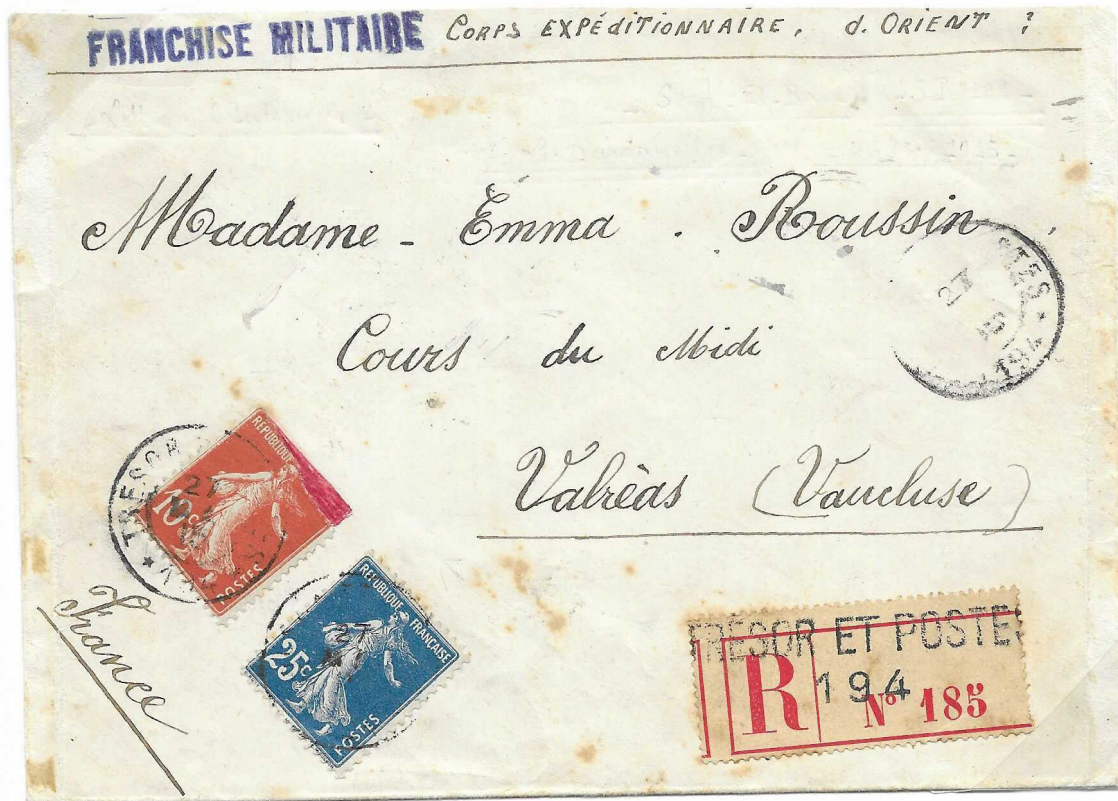 FRANCHISE MILITAIRE CORPS EXPÉDITIONNAIRE, d. ORIENT ?
Madame - Emma . Roussin
Cours du Midi
Valréas (Vaucluse)
France
TRESOR
27
REPUBLIQUE
10c
POSTES
27
REPUBLIQUE FRANÇAISE
25c
POSTES
27
194
TRESOR ET POSTES
194
R
N° 185